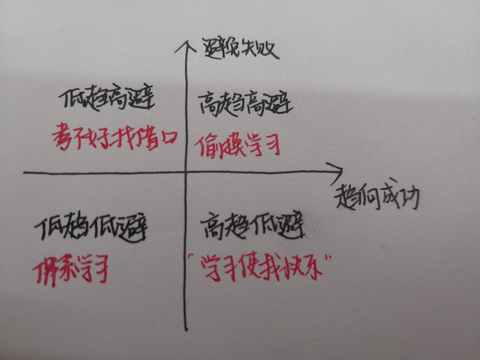 避免失败
低趋高避
高趋高避
考不好找借口
偷摸学习
趋向成功
低趋低避
高趋低避
佛系学习
"学习使我快乐"